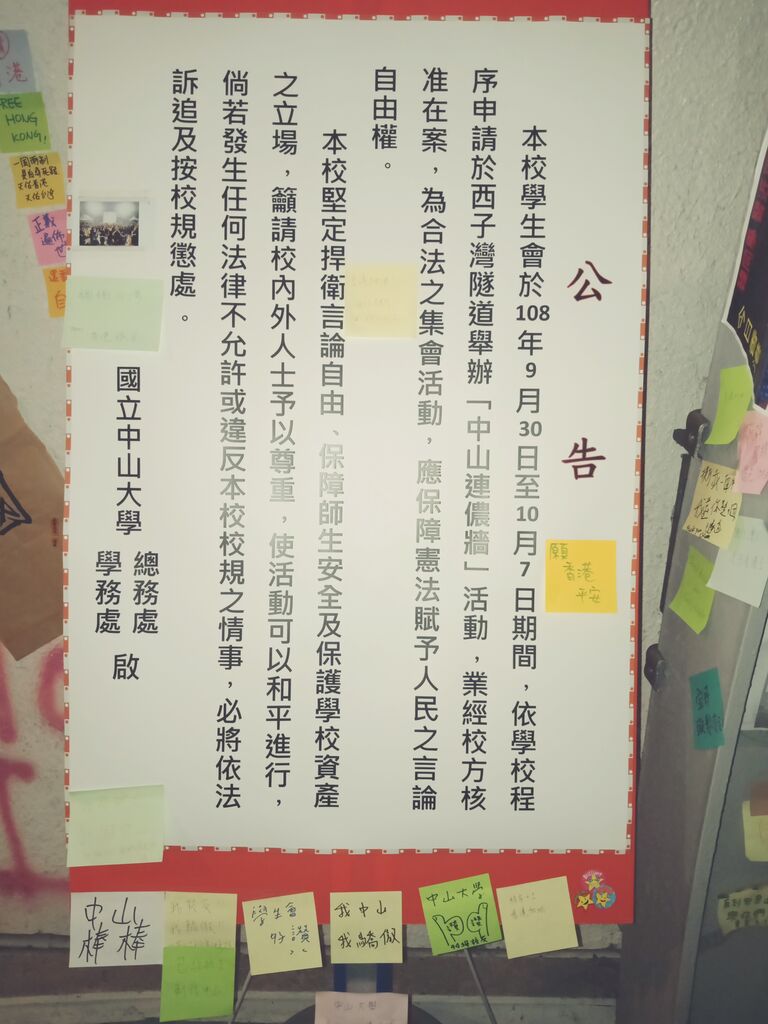 公告
本校學生會於108年9月30日至10月7日期間，依學校程
序申請於西子灣隧道舉辦「中山連儂牆」活動，業經校方核
准在案，為合法之集會活動，應保障憲法賦予人民之言論
自由權。
本校堅定捍衛言論自由、保障師生安全及保護學校資產
之立場，籲請校內外人士予以尊重，使活動可以和平進行，
倘若發生任何法律不允許或違反本校校規之情事，必將依法
訴追及按校規懲處。
國立中山大學
總務處
學務處
啟
願
香港
平安
FREE
HONG
KONG!
正義
中山
棒棒
學生會
好讚
我中山
我驕傲
中山大學
讚讚
中山大學